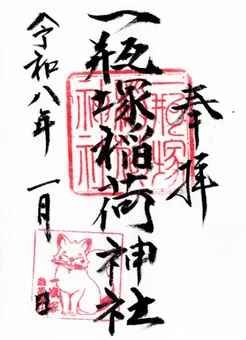 奉拝
一瓶塚稲荷神社
令和八年 一月 日